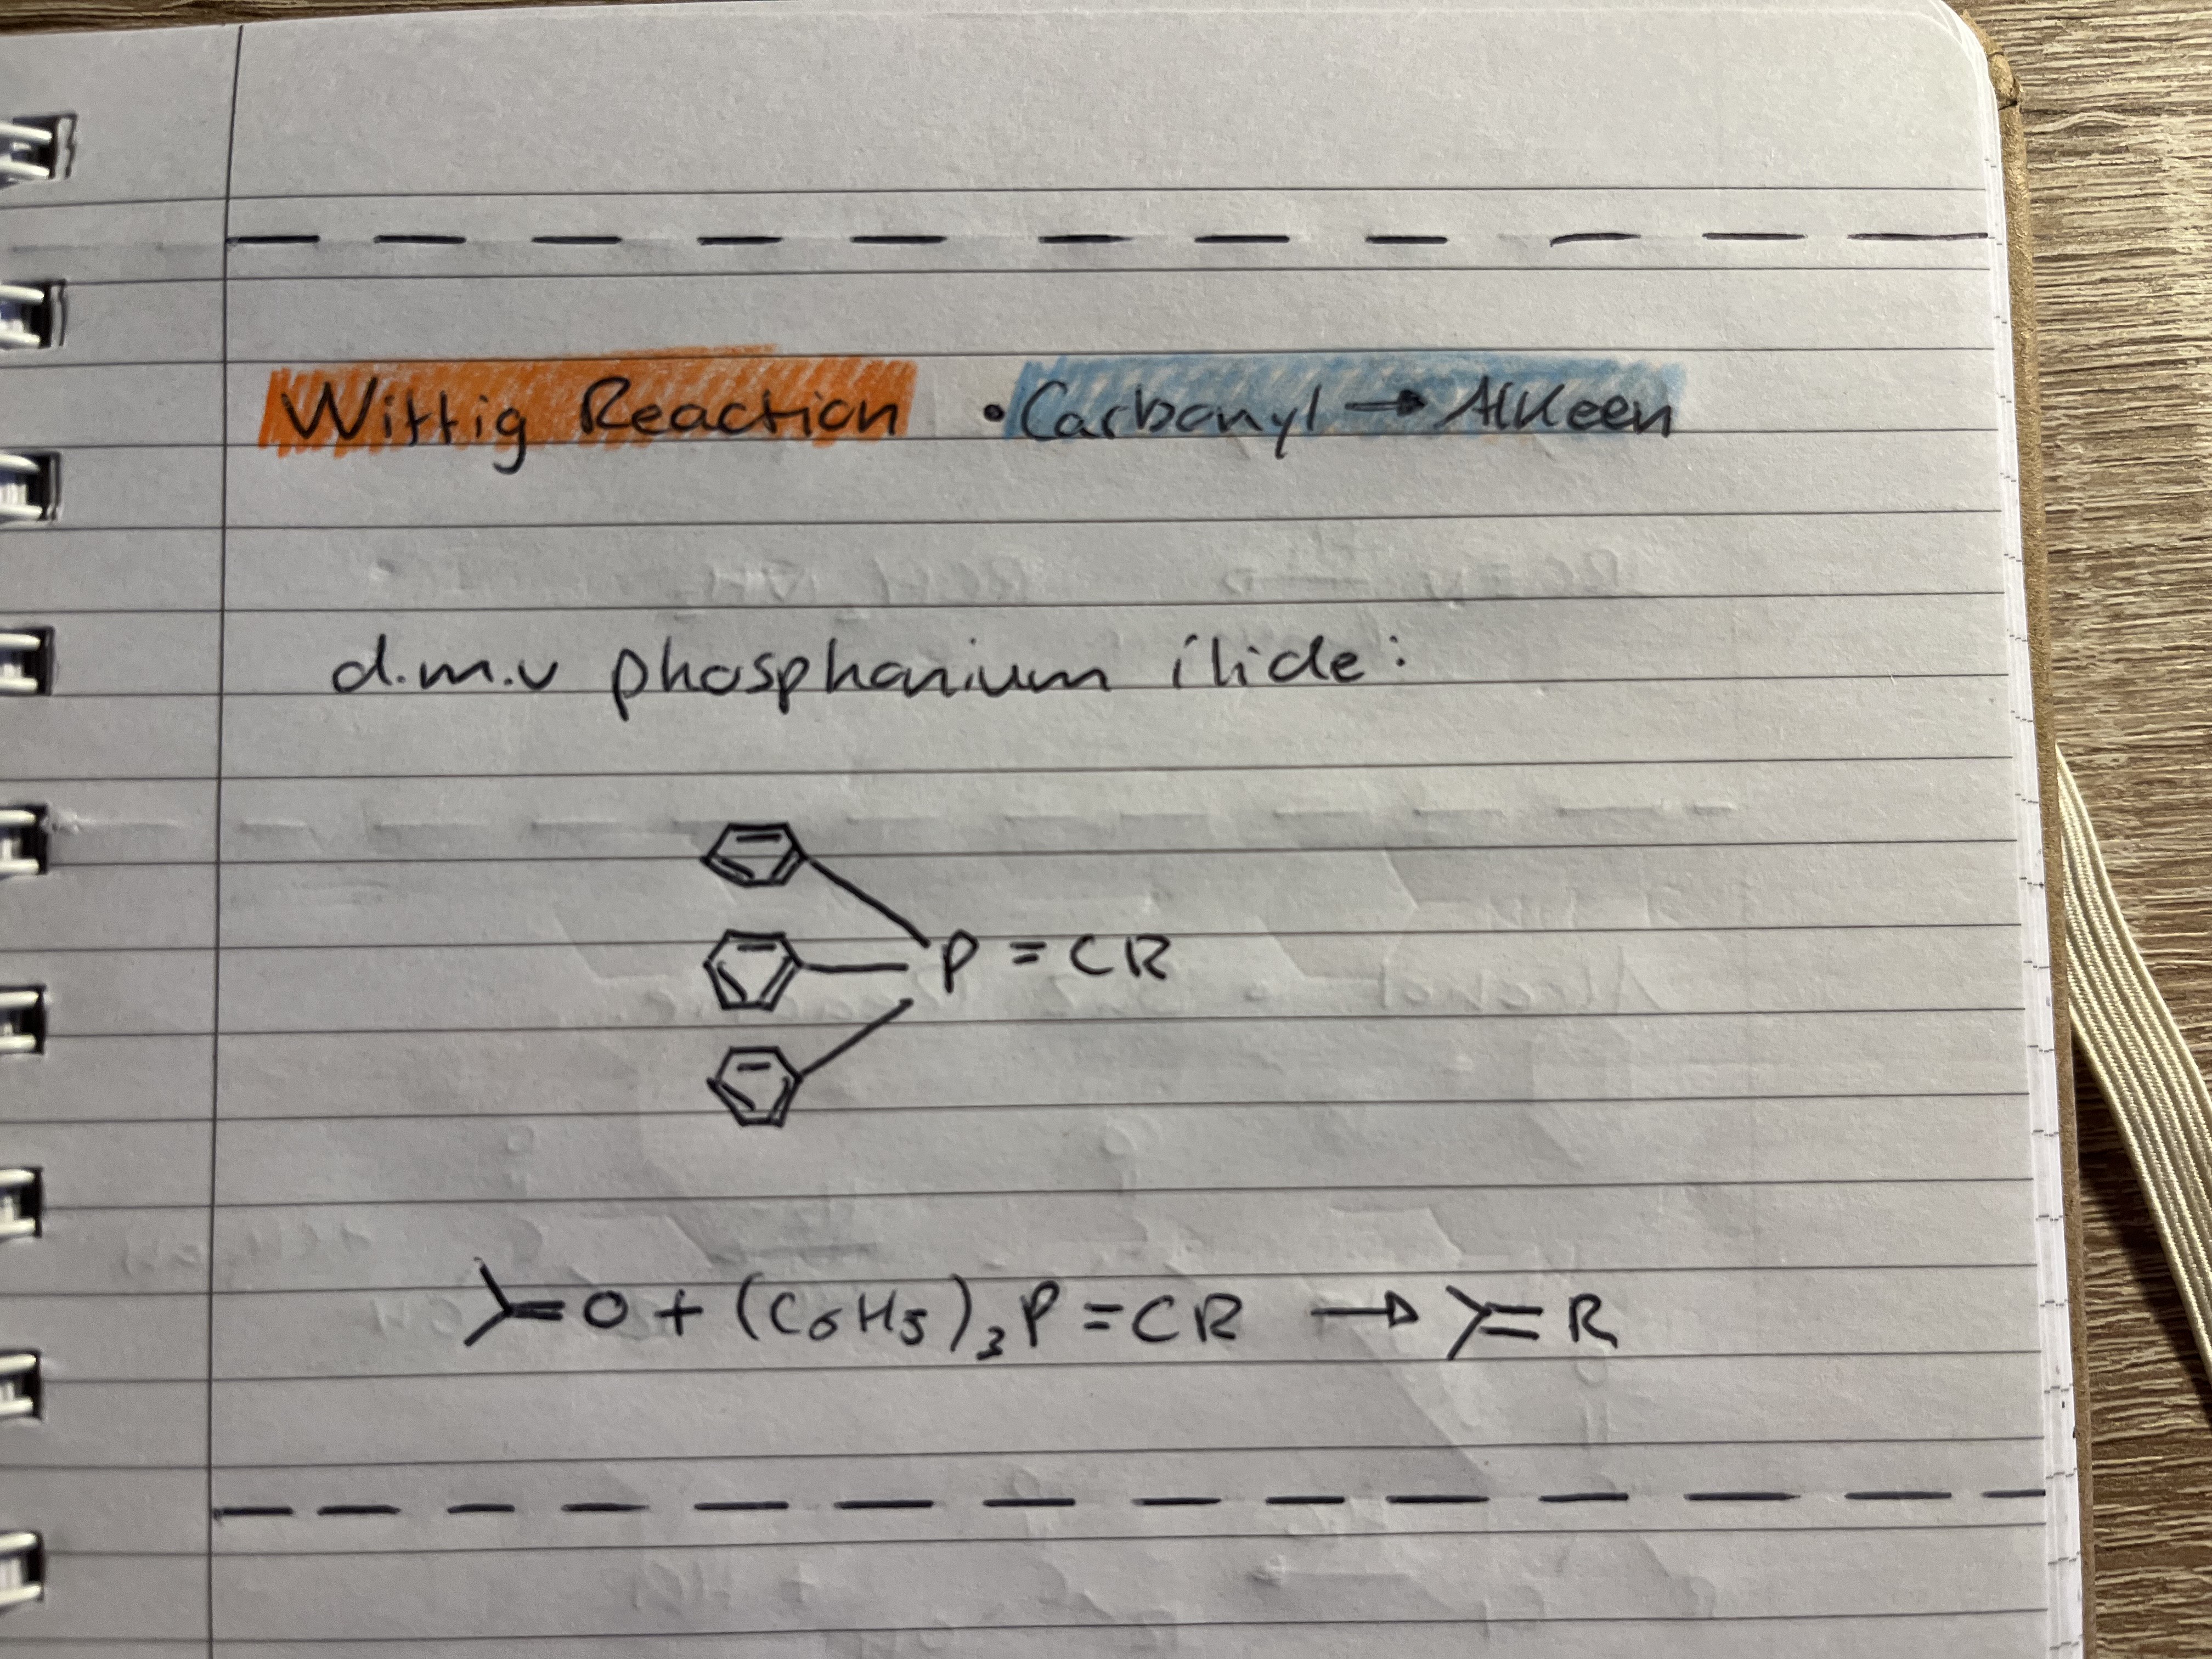 Wittig Reaction • Carbonyl → Alkeen
d.m.v phosphonium ilide:
P = CR
=O + (C6H5)3P = CR → =R